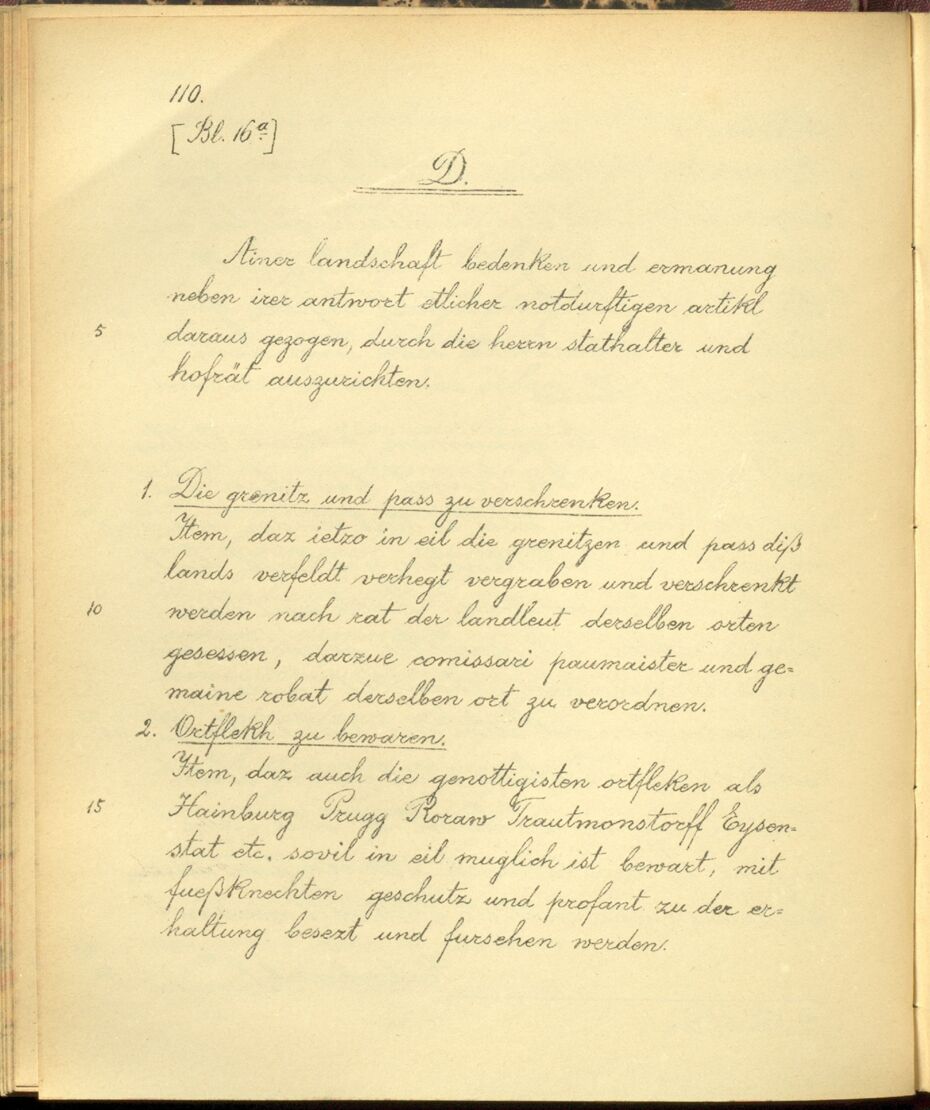 110.
[Bl. 16a]
D.
Ainer landschaft bedenken und ermanung
neben irer antwort etlicher notdurftigen artikl
5 daraus gezogen, durch die herrn stathalter und
hofrät auszurichten.
1. Die grenitz und pass zu verschrenken.
Item, daz ietzo in eil die grenitzen und pass diß
lands verfeldt verhegt vergraben und verschrenkt
10 werden nach rat der landleut derselben orten
gesessen, darzue comissari paumaister und ge=
maine robat derselben ort zu verordnen.
2. Ortflekh zu bewaren.
Item, daz auch die genottigisten ortfleken als
15 Hainburg Prugg Roraw Trautmonstorff Eysen=
stat etc. sovil in eil muglich ist bewart, mit
fueßknechten geschutz und profant zu der er=
haltung besezt und fursehen werden.